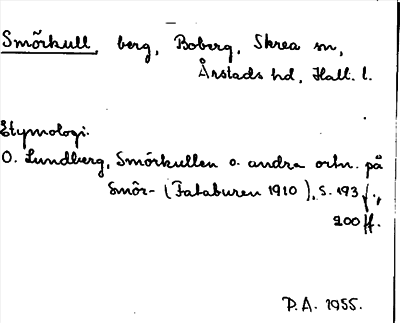 Smörkull, berg, Boberg, Skrea sn,
Årstads hd, Hall. l.
Etymologi.
O. Lundberg, Smörkullen o. andra ortn. på
Smör- (Fataburen 1910), s. 193 f.,
200 ff.
P.A. 1955.